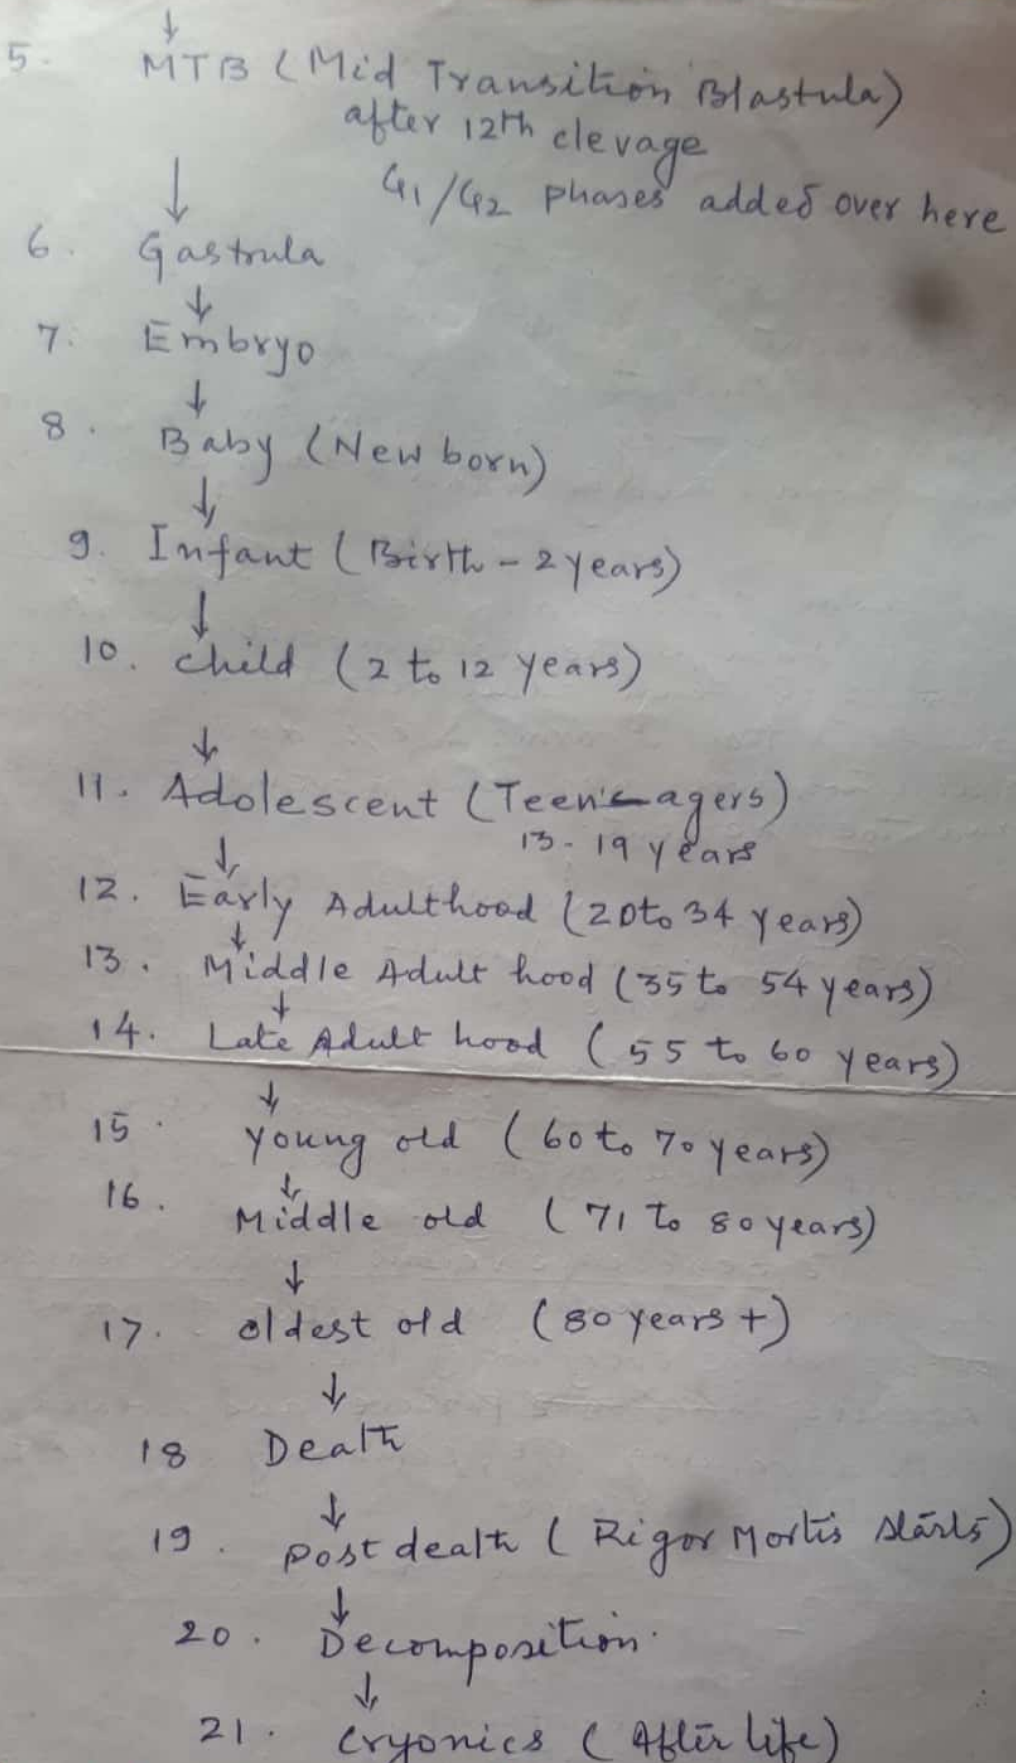 ↓
5. MTB (Mid Transition Blastula)
after 12th clevage
G1/G2 phases added over here
↓
6. Gastrula
↓
7. Embryo
↓
8. Baby (New born)
↓
9. Infant (Birth - 2 years)
↓
10. child (2 to 12 years)
↓
11. Adolescent (Teen agers)
13 - 19 years
↓
12. Early Adulthood (20 to 34 years)
↓
13. Middle Adult hood (35 to 54 years)
↓
14. Late Adult hood (55 to 60 years)
↓
15. young old (60 to 70 years)
↓
16. Middle old (71 to 80 years)
↓
17. oldest old (80 years +)
↓
18 Death
↓
19. post death (Rigor Mortis starts)
↓
20. Decomposition.
↓
21. cryonics (After life)